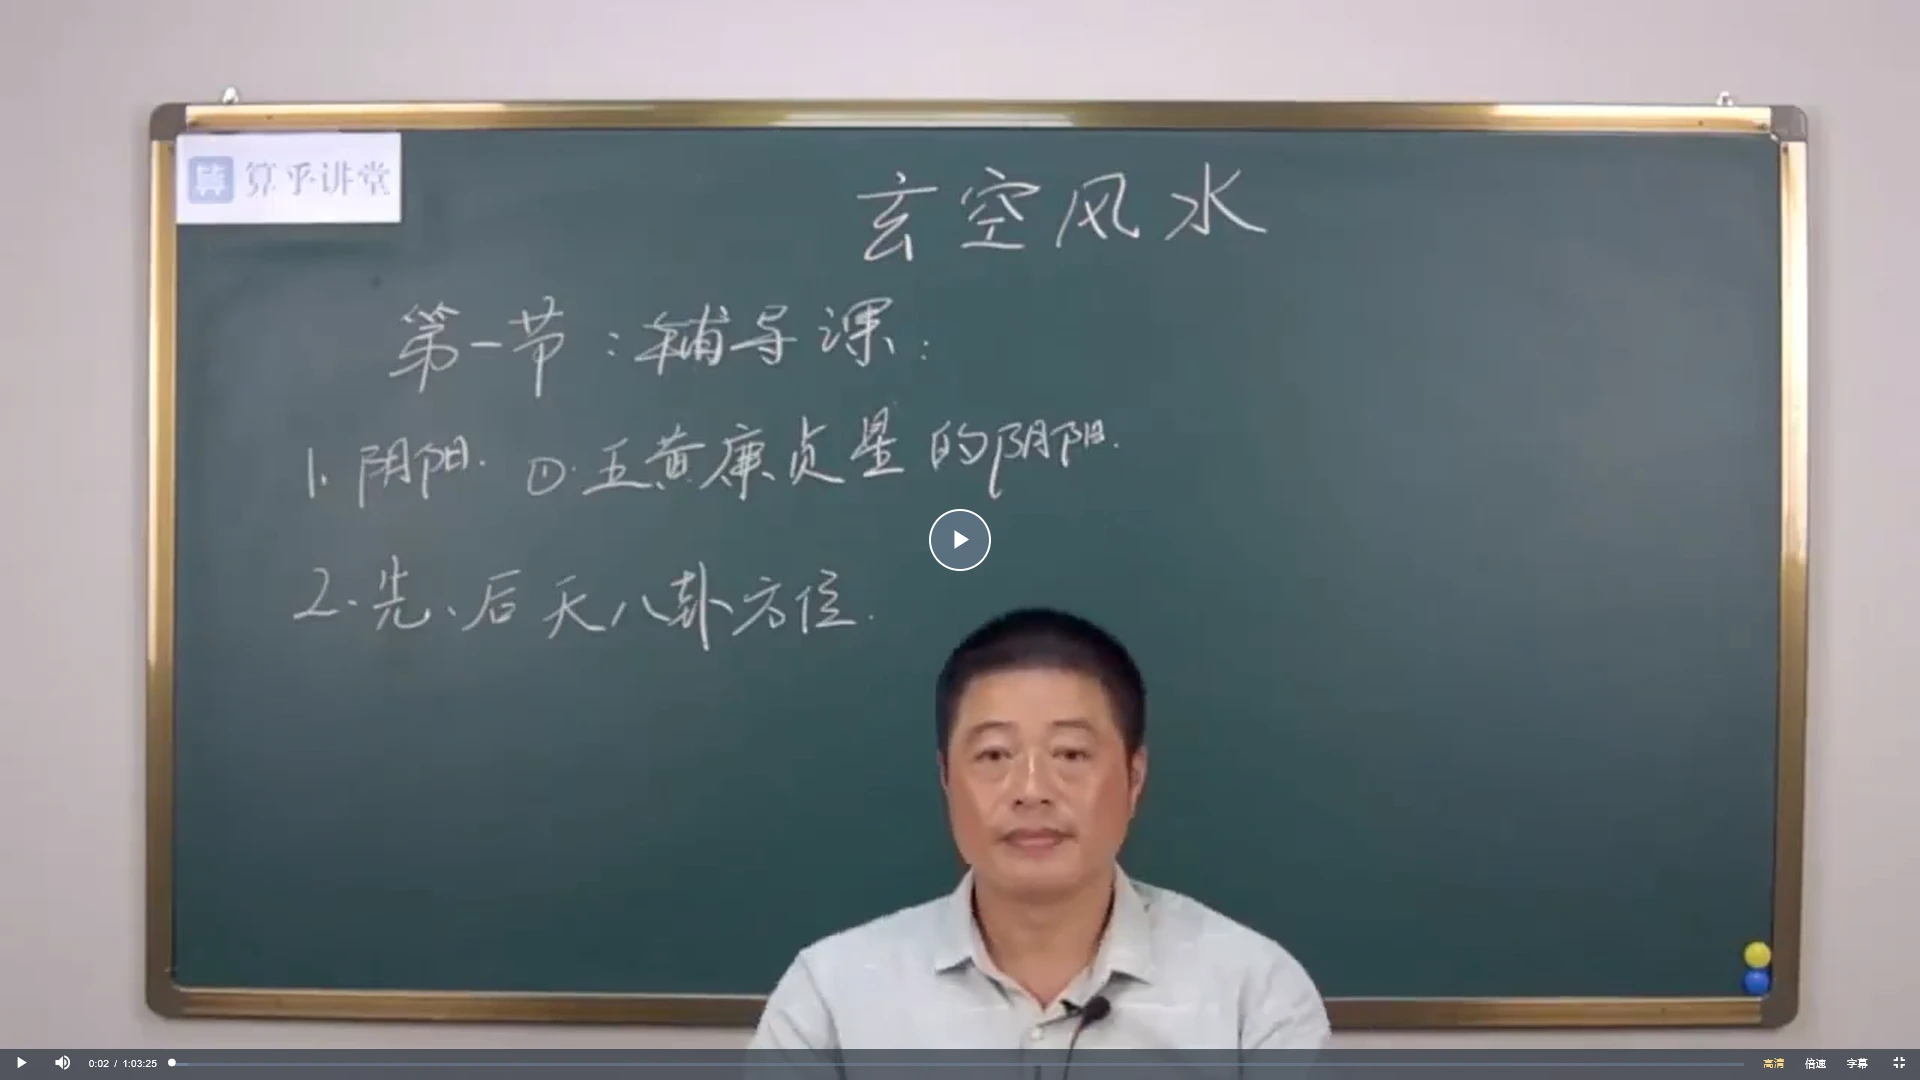 算乎讲堂
玄空风水
第一节：辅导课：
1. 阴阳. ①. 五黄廉贞星的阴阳.
2. 先、后天八卦方位.
0:02 / 1:03:25 高清 倍速 字幕